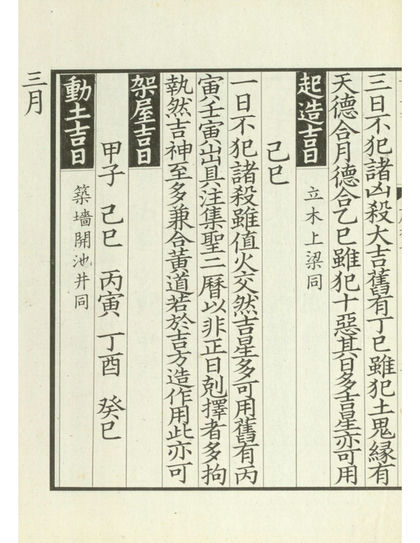 三日不犯諸凶殺大吉舊有丁巳雖犯土鬼緣有
天德合月德合乙巳雖犯十惡其日多吉星亦可用
起造吉日 立木上梁同
己巳
一日不犯諸殺雖值火交然吉星多可用舊有丙
寅壬寅出具注集聖二曆以非正日剋擇者多拘
執然吉神至多兼合黃道若於吉方造作用此亦可
架屋吉日
甲子 己巳 丙寅 丁酉 癸巳
動土吉日 築墻開池井同
三月